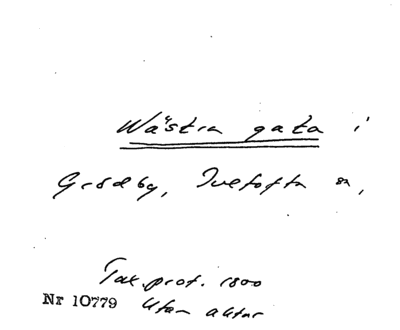 Wästra gata i
Grödby, Tvetofta sn,
Tax. prot. 1800
Nr 10779 Utan aktnr